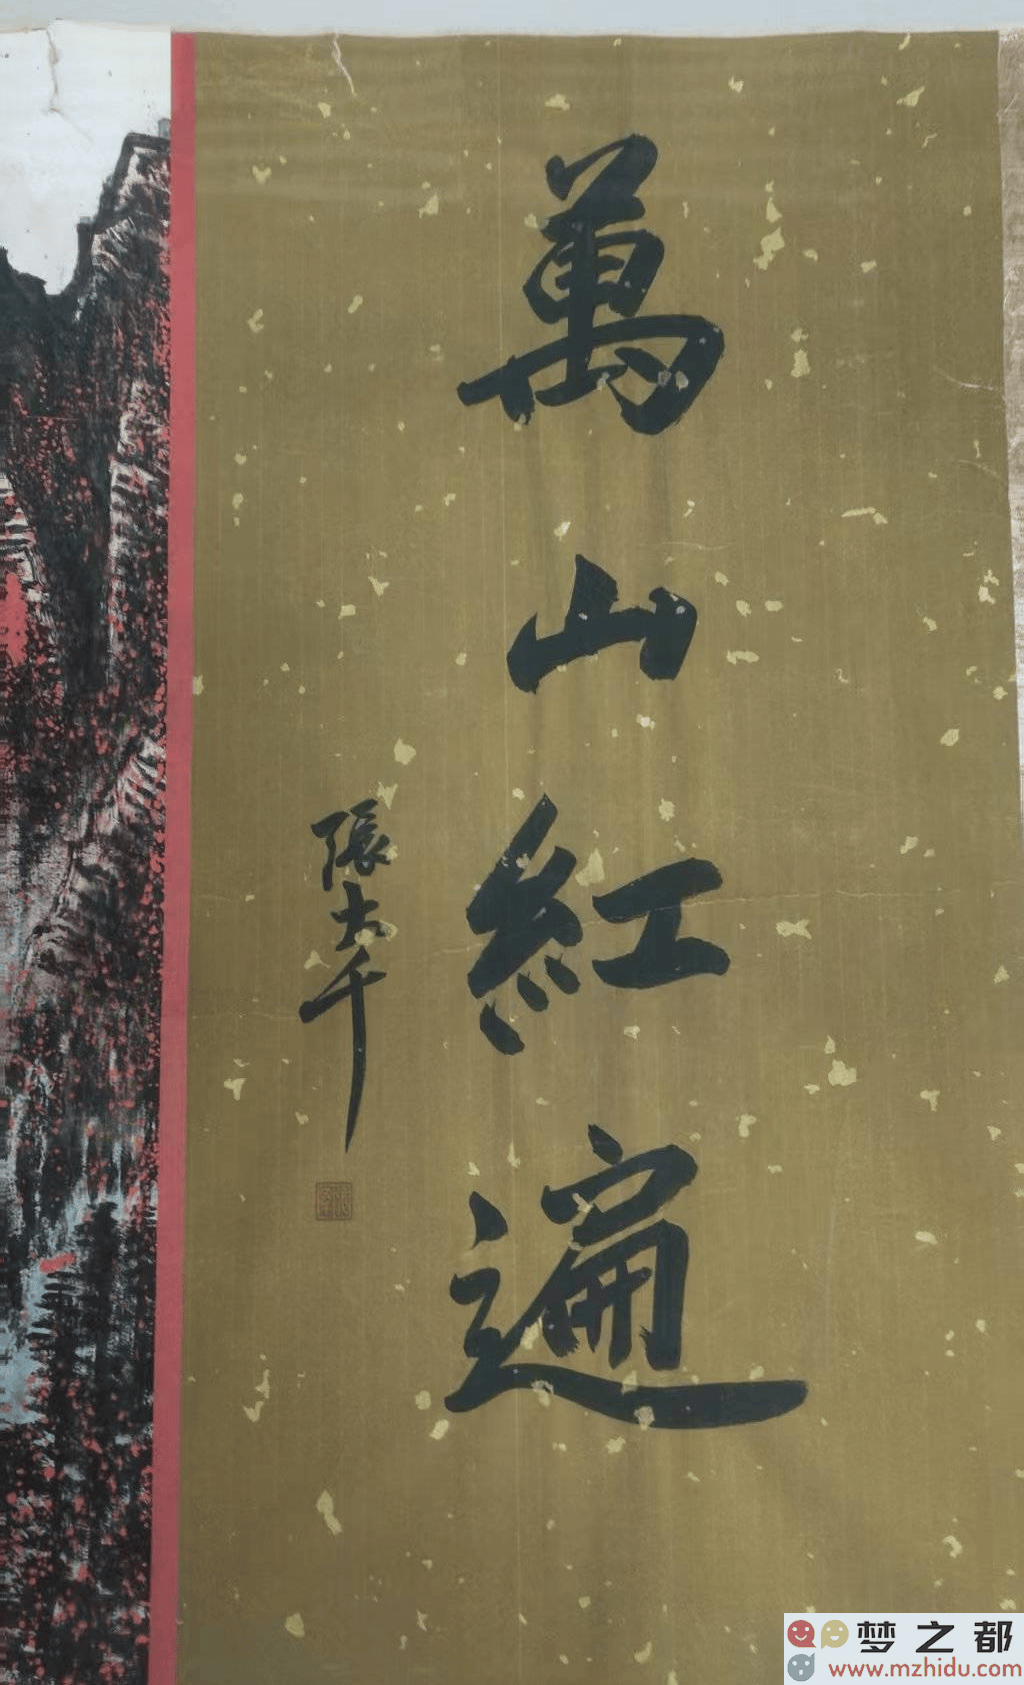 萬山紅遍
張大千
梦之都
www.mzhidu.com